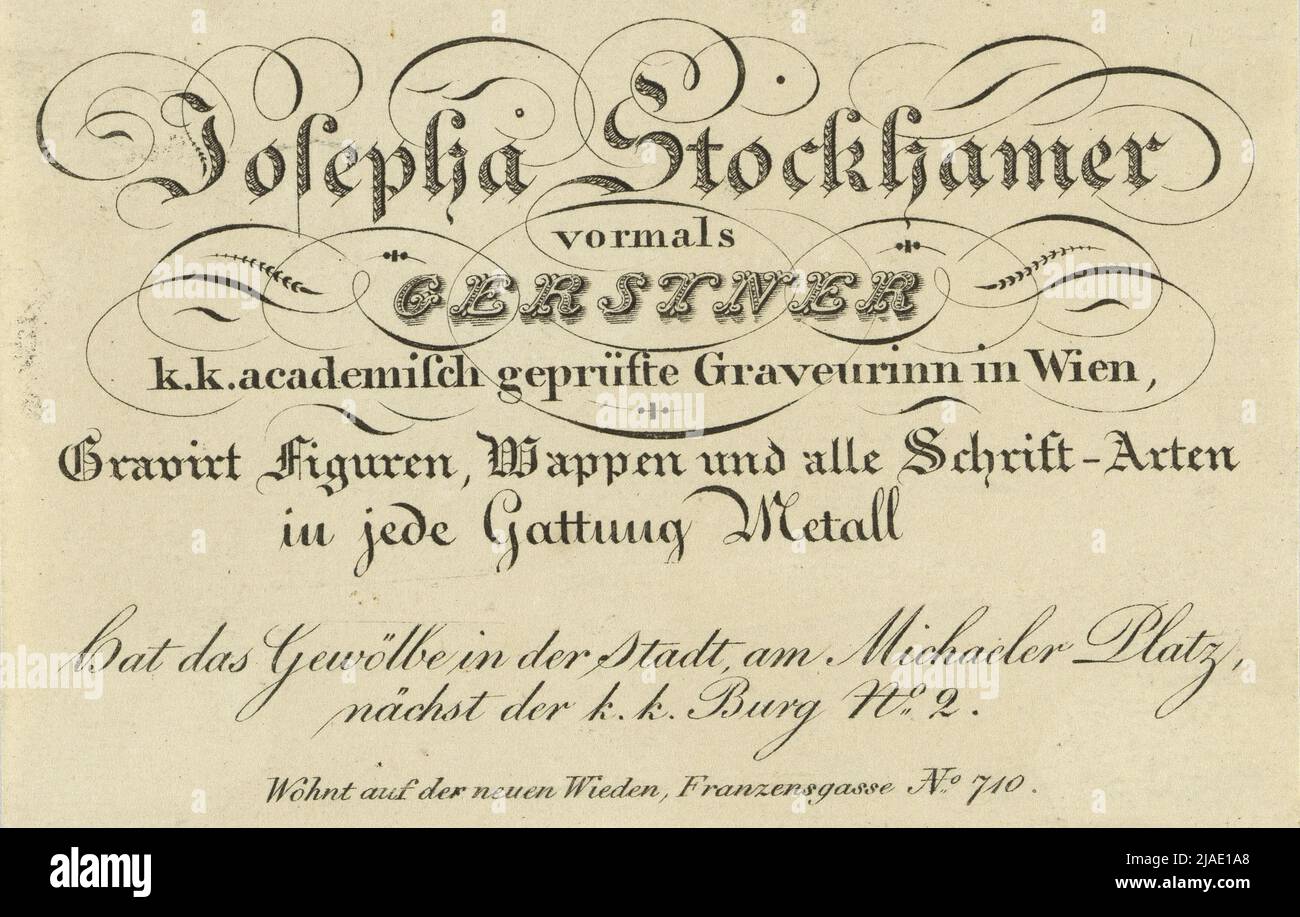 Josepha Stockhamer
vormals
GERSTNER
k.k. academiſch geprüfte Graveurinn in Wien,
Gravirt Figuren, Wappen und alle Schrift-Arten
in jede Gattung Metall
hat das Gewölbe in der Stadt, am Michaeler Platz,
nächst der k. k. Burg No. 2.
Wohnt auf der neuen Wieden, Franzensgasse No. 710.
alamy
Image ID: 2JAE1A8
www.alamy.com